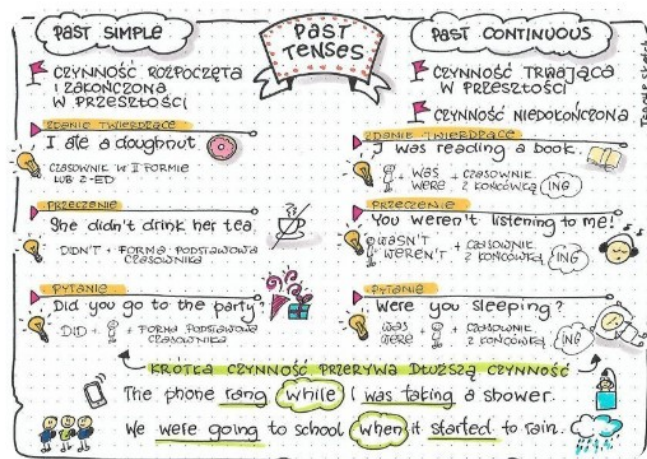 PAST SIMPLE
PAST TENSES
PAST CONTINUOUS
CZYNNOŚĆ ROZPOCZĘTA
I ZAKOŃCZONA
W PRZESZŁOŚCI
ZDANIE TWIERDZĄCE
I ate a doughnut
CZASOWNIK W II FORMIE
LUB Z -ED
PRZECZENIE
She didn't drink her tea
DIDN'T + FORMA PODSTAWOWA
CZASOWNIKA
PYTANIE
Did you go to the party?
DID + + FORMA PODSTAWOWA
CZASOWNIKA
CZYNNOŚĆ TRWAJĄCA
W PRZESZŁOŚCI
CZYNNOŚĆ NIEDOKOŃCZONA
ZDANIE TWIERDZĄCE
I was reading a book.
+ WAS + CZASOWNIK
WERE Z KOŃCÓWKĄ ING
PRZECZENIE
You weren't listening to me!
WASN'T + CZASOWNIK
WEREN'T Z KOŃCÓWKĄ ING
PYTANIE
Were you sleeping?
WAS + + CZASOWNIK
WERE Z KOŃCÓWKĄ ING
KRÓTKA CZYNNOŚĆ PRZERYWA DŁUŻSZĄ CZYNNOŚĆ
The phone rang while I was taking a shower.
We were going to school when it started to rain.